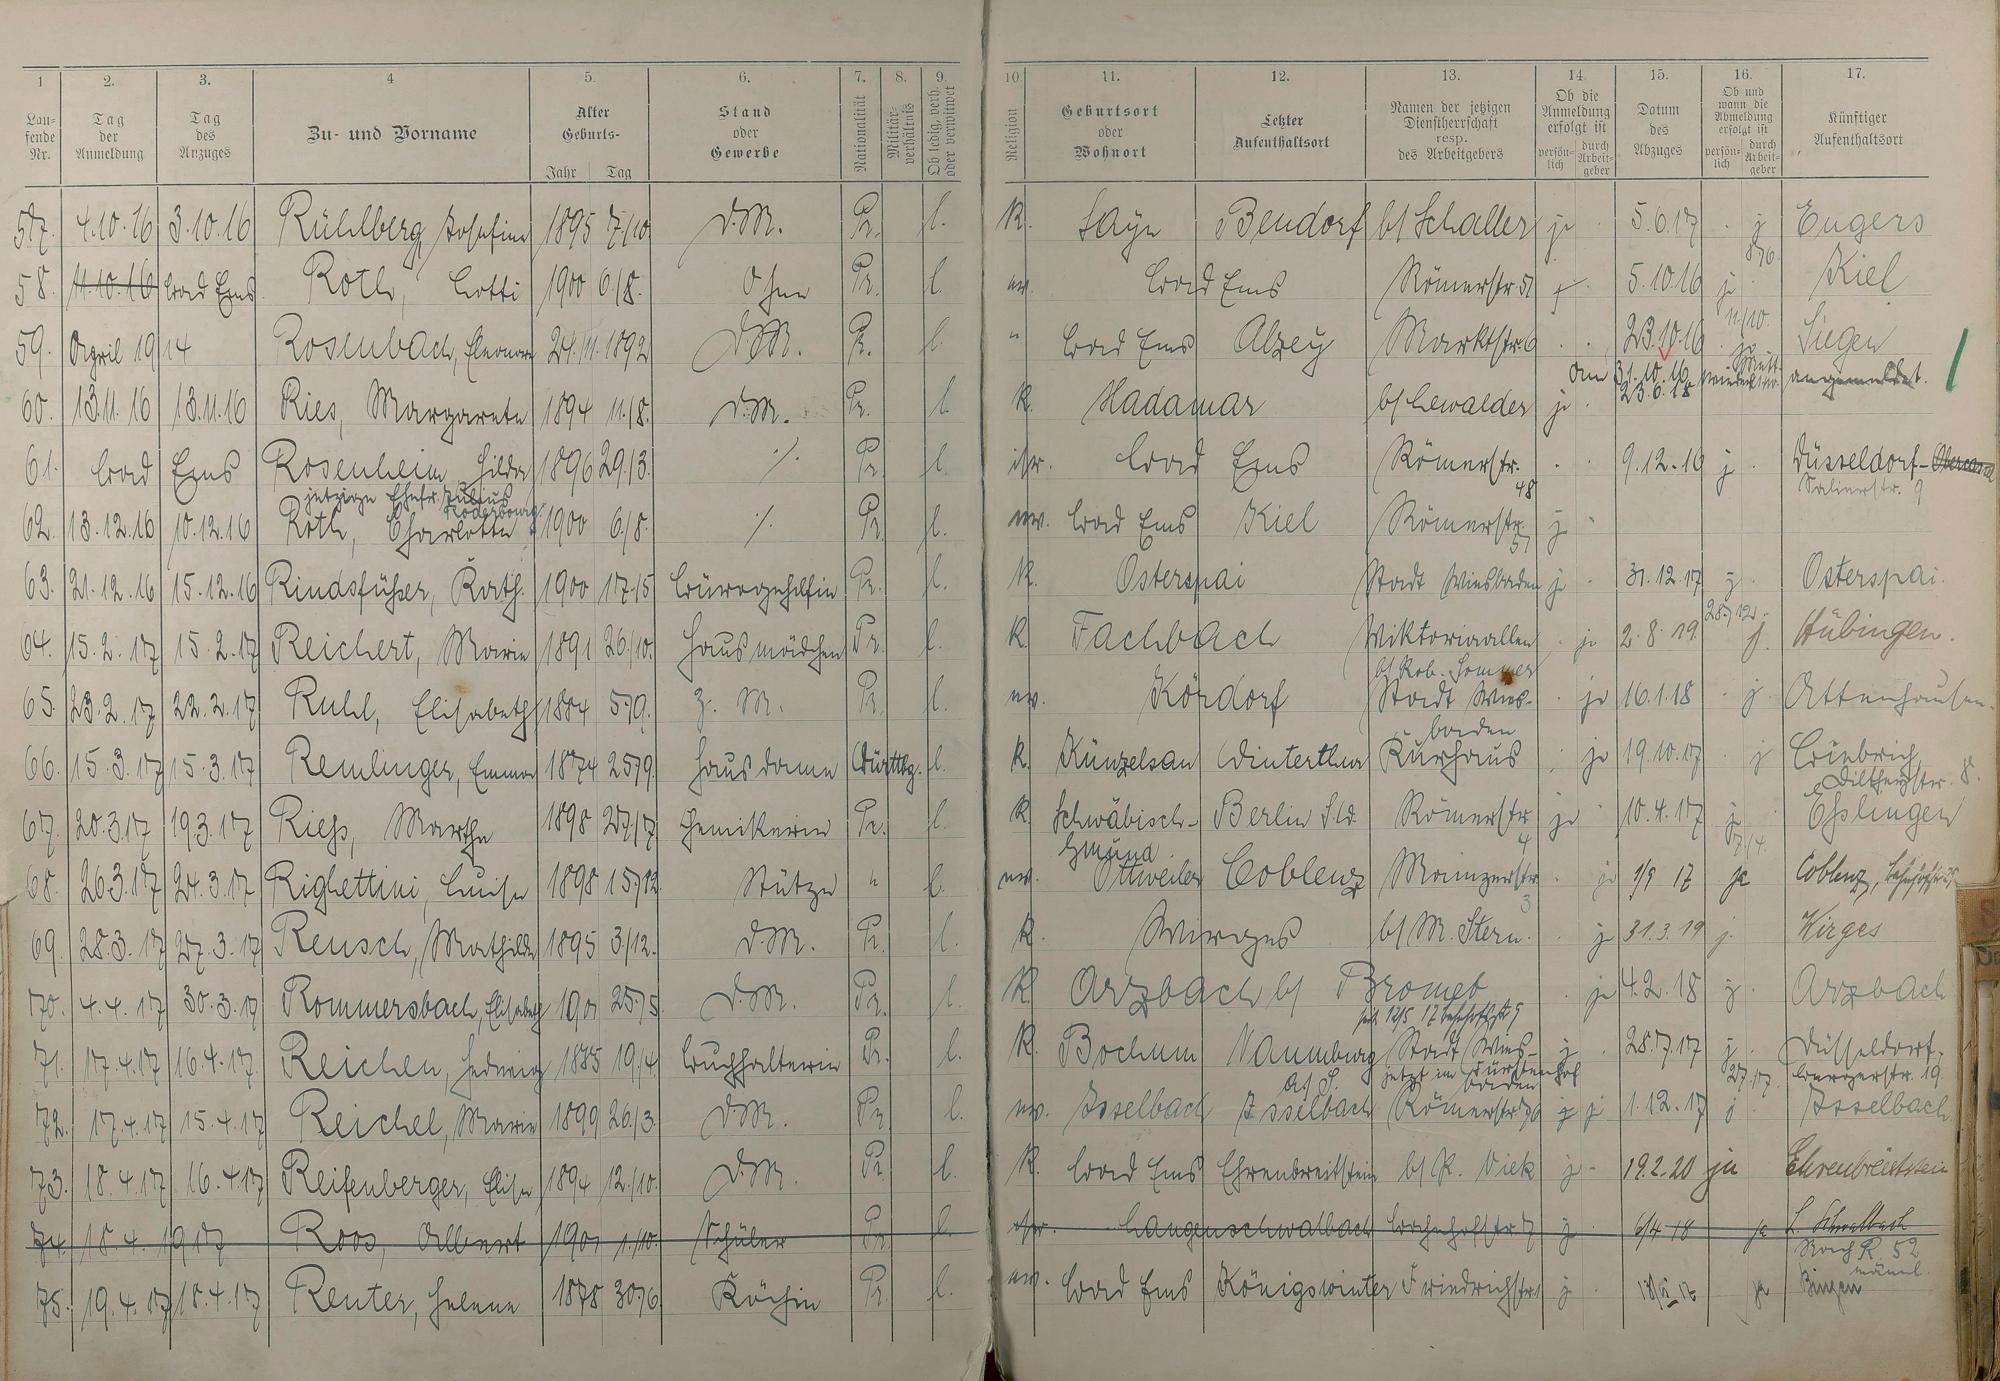 1 2. 3. 4 5. 6. 7. 8. 9. 10 11. 12. 13. 14 15. 16. 17.
Lau-
fende
Nr.
Tag
der
Anmeldung
Tag
des
Anzuges
Zu- und Vorname
Alter
Geburts-
Jahr Tag
Stand
oder
Gewerbe
Nationalität
Militär-
verhältnis
Ob ledig, verh.
oder verwitwet
Religion
Geburtsort
oder
Wohnort
Letzter
Aufenthaltsort
Namen der jetzigen
Dienstherrschaft
resp.
des Arbeitgebers
Ob die
Anmeldung
erfolgt ist
persön-
lich
durch
Arbeit-
geber
Datum
des
Abzuges
Ob und
wann die
Abmeldung
erfolgt ist
persön-
lich
durch
Arbeit-
geber
Künftiger
Aufenthaltsort
57. 4.10.16 3.10.16 Rühlberg Josefine 1895 7/10 D.M. Pr. l. K. Sayn Bendorf b/ Schaller ja 5.6.17 j Engers
58. 11.10.16 Bad Ems Roth, Lotti 1900 6/8. Ohne Pr. l. ev. Bad Ems Römerstr. 51 5.10.16 j Kiel
59. April 1914 Rosenbach, Eleonore 24.11.1892 D.M. Pr. l. " Bad Ems Alzey Marktstr. 6 23.10.16 11/10. Siegen
am 31.10.16 angemeldet.
60. 13.11.16 13.11.16 Ries, Margarete 1894 11/8. D.M. Pr. l. K. Hadamar b/ Lewalder ja 25.6.18
61. Bad Ems Rosenheim Hilda 1896 29./3. ./. Pr. l. isr. Bad Ems Römerstr. 48 9.12.16 j Düsseldorf-
jetzige Ehefr. Julius
62. 13.12.16 10.12.16 Roth, Charlotte 1900 6/8. ./. Pr. l. ev. Bad Ems Kiel Römerstr. 51 j
63. 21.12.16 15.12.16 Rindsfüßer, Kath. 1900 17./5 Bürogehilfin Pr. l. K. Osterspai Stadt Wiesbaden ja 31.12.17 j. Osterspai.
64. 15.2.17 15.2.17 Reichert, Marie 1891 26/10. Hausmädchen Pr. l. K. Fachbach Viktoriaallee ja 2.8.19. j. Hübingen.
b/ Rob. Sommer
65. 23.2.17 22.2.17 Ruhl, Elisabeth 1884 5/9. Z.M. Pr. l. ev. Kördorf Stadt Wies- ja 16.1.18 j. Attenhausen.
baden
66. 15.3.17 15.3.17 Remlinger, Emma 1874 25/9. Hausdame Württbg. l. K. Künzelsau Winterthur Kurhaus ja 19.10.17 j Biebrich,
Diltheystr. 8.
67. 20.3.17 19.3.17 Rieß, Marthe 1898 27/7 Chemikerin Pr. l. K. Schwäbisch- Berlin Römerstr. 4 ja 10.4.17 j Eßlingen
Gmünd
68. 26.3.17 24.3.17 Righettini, Luise 1898 15/12 Stütze " l. ev. Ottweiler Coblenz Mainzerstr. 3 ja 1/9 17 ja Coblenz,
69. 28.3.17 27.3.17 Reusch, Mathilde 1895 3/12. D.M. Pr. l. K. Wirges b/ M. Stern. ja 31.3.19 j. Wirges
70. 4.4.17 30.3.17 Rommersbach, Elisabeth 1901 25/5 D.M. Pr. l. K. Arzbach b/ Bromeb ja 4.2.18 j. Arzbach
71. 17.4.17 16.4.17 Reichen, Hedwig 1885 19/4 Buchhalterin Pr. l. K. Bochum Naumburg Stadt Wies- j 28.7.17 j Düsseldorf.
a/ S. baden jetzt im Fürstenhof 27.7.17.
72. 17.4.17 15.4.17 Reichel, Marie 1899 26/3. D.M. Pr. l. ev. Isselbach Isselbach Römerstr. j j 1.12.17 j Isselbach.
73. 18.4.17 16.4.17 Reifenberger, Elise 1894 12./10. D.M. Pr. l. K. Bad Ems Ehrenbreitstein b/ P. Viek j. 19.2.20 ja Ehrenbreitstein
74. 18.4.1917 Roos, Albert 1901 1./10. Schüler Pr. l. isr. Langenschwalbach Bahnhofstr. 7 j 6/4 18 ja L. Schwalbach
Nach R. 52
männl.
75. 19.4.17 18.4.17 Reuter, Helene 1878 30/6. Köchin Pr. l. ev. Bad Ems Königswinter Friedrichstr. j ja Bingen